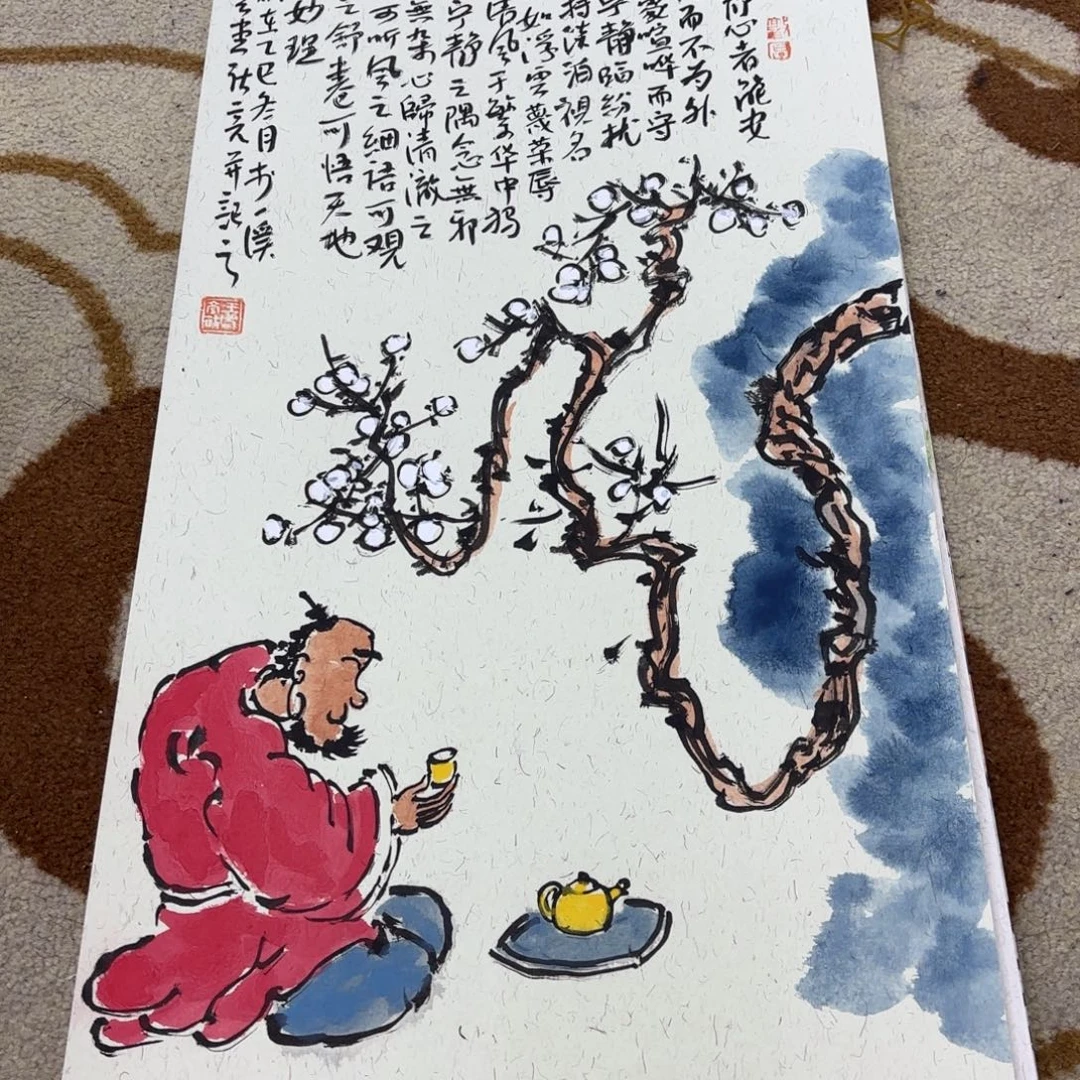 心者能安
而不为外
喧哗而守
静临纷扰
持淡泊视名
如浮云蔑荣辱
清风于繁华中独
宁静之隅念無邪
無杂心歸清澈之
可听风之细语可观
之舒卷可悟天地
妙理
在乙巳冬月于一溪
并記之